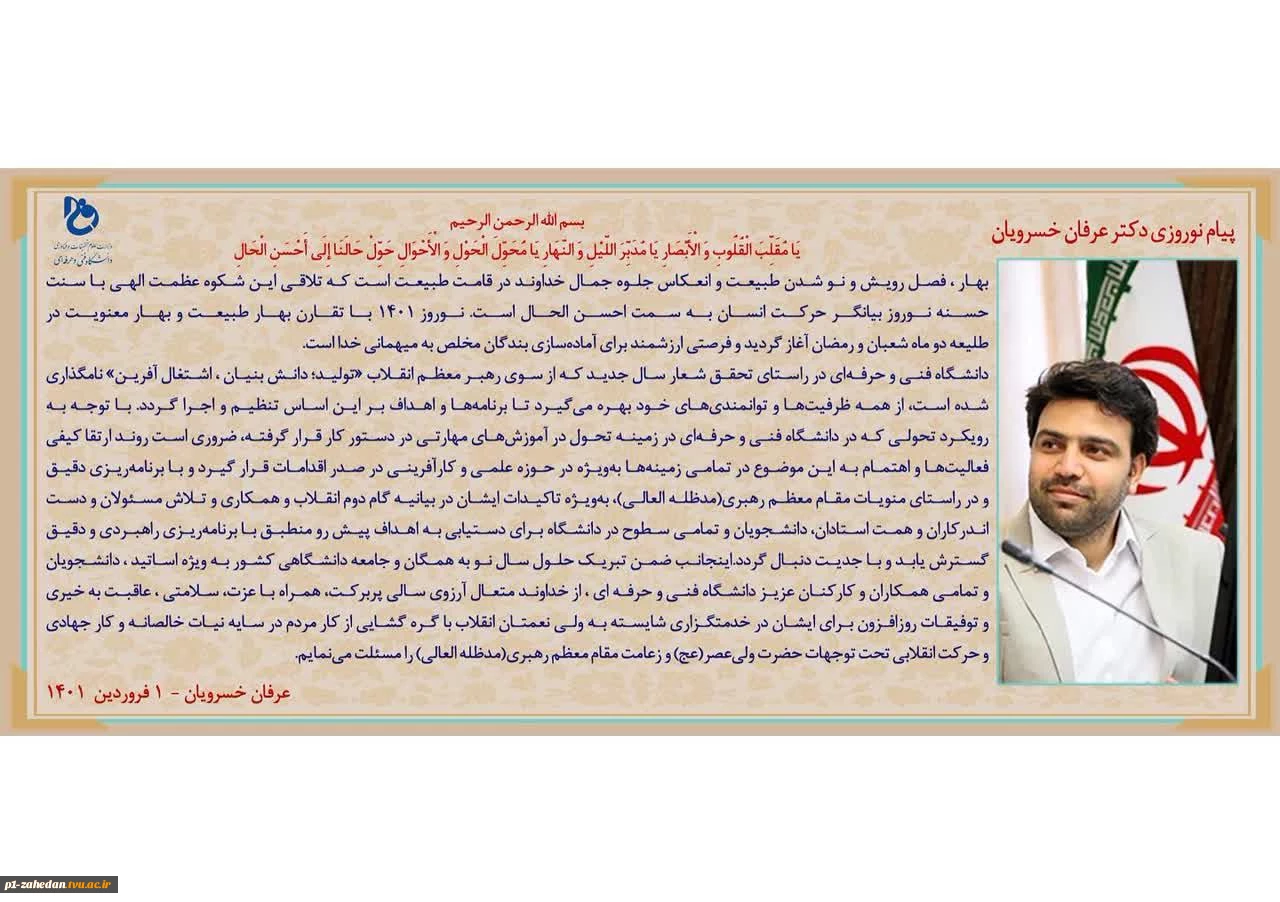 پیام نوروزی دکتر عرفان خسرویان
وزارت علوم تحقیقات و فناوری
دانشگاه فنی و حرفه‌ای
بسم الله الرحمن الرحیم
یَا مُقَلِّبَ الْقُلُوبِ وَ الْأَبْصَارِ یَا مُدَبِّرَ اللَّیْلِ وَ النَّهَارِ یَا مُحَوِّلَ الْحَوْلِ وَ الْأَحْوَالِ حَوِّلْ حَالَنَا إِلَی أَحْسَنِ الْحَالِ
بهار ، فصل رویش و نو شدن طبیعت و انعکاس جلوه جمال خداوند در قامت طبیعت است که تلاقی این شکوه عظمت الهی با سنت
حسنه نوروز بیانگر حرکت انسان به سمت احسن الحال است. نوروز ۱۴۰۱ با تقارن بهار طبیعت و بهار معنویت در
طلیعه دو ماه شعبان و رمضان آغاز گردید و فرصتی ارزشمند برای آماده‌سازی بندگان مخلص به میهمانی خدا است.
دانشگاه فنی و حرفه‌ای در راستای تحقق شعار سال جدید که از سوی رهبر معظم انقلاب «تولید؛ دانش بنیان ، اشتغال آفرین» نامگذاری
شده است، از همه ظرفیت‌ها و توانمندی‌های خود بهره می‌گیرد تا برنامه‌ها و اهداف بر این اساس تنظیم و اجرا گردد. با توجه به
رویکرد تحولی که در دانشگاه فنی و حرفه‌ای در زمینه تحول در آموزش‌های مهارتی در دستور کار قرار گرفته، ضروری است روند ارتقا کیفی
فعالیت‌ها و اهتمام به این موضوع در تمامی زمینه‌ها به‌ویژه در حوزه علمی و کارآفرینی در صدر اقدامات قرار گیرد و با برنامه‌ریزی دقیق
و در راستای منویات مقام معظم رهبری(مدظله العالی)، به‌ویژه تاکیدات ایشان در بیانیه گام دوم انقلاب و همکاری و تلاش مسئولان و دست
اندرکاران و همت استادان، دانشجویان و تمامی سطوح در دانشگاه برای دستیابی به اهداف پیش رو منطبق با برنامه‌ریزی راهبردی و دقیق
گسترش یابد و با جدیت دنبال گردد.اینجانب ضمن تبریک حلول سال نو به همگان و جامعه دانشگاهی کشور به ویژه اساتید ، دانشجویان
و تمامی همکاران و کارکنان عزیز دانشگاه فنی و حرفه ای ، از خداوند متعال آرزوی سالی پربرکت، همراه با عزت، سلامتی ، عاقبت به خیری
و توفیقات روزافزون برای ایشان در خدمتگزاری شایسته به ولی نعمتان انقلاب با گره گشایی از کار مردم در سایه نیات خالصانه و کار جهادی
و حرکت انقلابی تحت توجهات حضرت ولی‌عصر(عج) و زعامت مقام معظم رهبری(مدظله العالی) را مسئلت می‌نمایم.
عرفان خسرویان - ۱ فروردین ۱۴۰۱
p1-zahedan.tvu.ac.ir